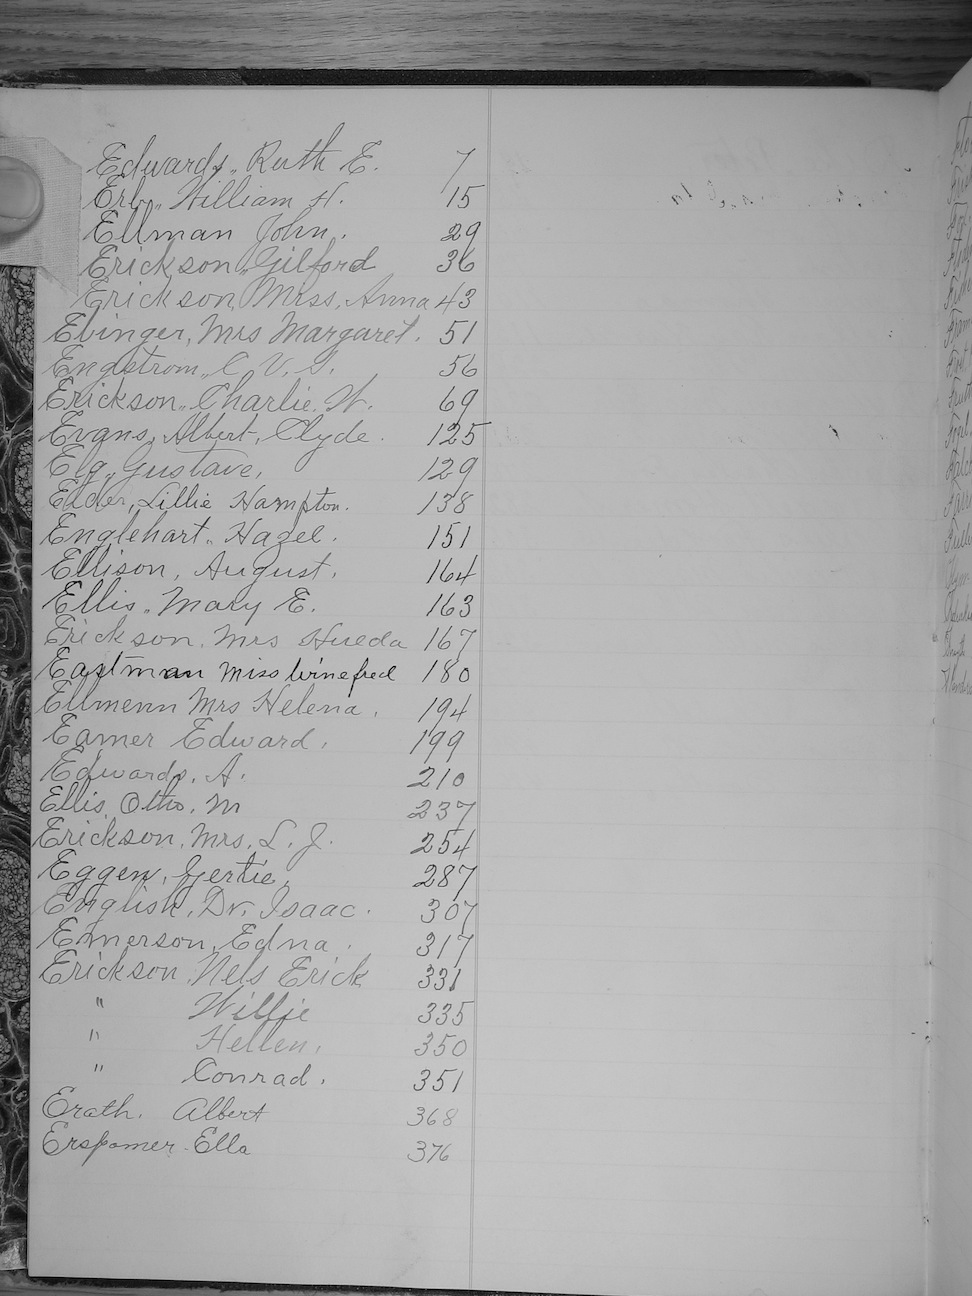 Edwards, Ruth E. 7
Erb, William H. 15
Ellman John. 29
Erickson, Gilford 36
Erickson, Miss, Anna 43
Ebinger, Mrs Margaret. 51
Engstrom, C. V. S. 56
Erickson, Charlie. W. 69
Evans, Albert, Clyde. 125
Elg, Gustave, 129
Elder, Lillie Hampton. 138
Englehart, Hazel. 151
Ellison, August. 164
Ellis, Mary E. 163
Erickson, Mrs Hueda 167
Eastman Miss Winefred 180
Ellmenn Mrs Helena. 194
Eamer Edward. 199
Edwards, A. 210
Ellis, Otho. M 237
Erickson, Mrs. L. J. 254
Eggen, Gertie. 287
English, Dr. Isaac. 307
Emerson, Edna. 317
Erickson, Nels Erick 331
" Willie 335
" Hellen. 350
" Conrad. 351
Erath. Albert 368
Erspamer - Ella 376